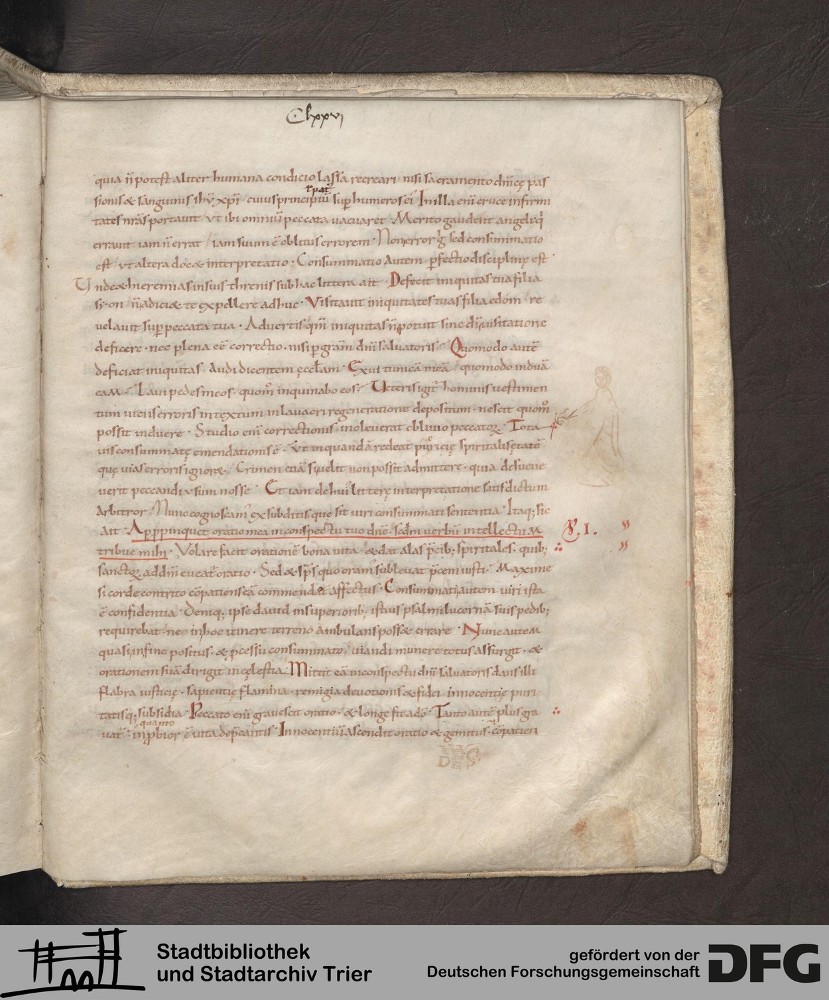 Clxxvi
quia n̄ potest aliter humana condicio lassa recreari · nisi sacramento dn̄icę pas
sionis & sanguinis ihū xp̄i · cuius principatū sup humeros ei · In illa enī cruce infirmi
tates nr̄as portauit · ut ibi omniū peccata uacuaret · Merito gaudent angeli qd̄
errauit iam n̄ errat / iam suum ē oblitus errorem · Non error ḡ sed consummatio
est / ut altera doc& interpretatio · Consummatio autem · pfectio disciplinę est ·
Unde & hieremias in suis threnis sub hac littera ait · Defecit iniquitas tua filia
syon / n̄ adici& te expellere adhuc · Visitauit iniquitates tuas filia edom / re
uelauit sup peccata tua · Aduertis qm̄ iniquitas n̄ potuit sine dī uisitatione
deficere · nec plena eē correctio · nisi p gram̄ dn̄i saluatoris · Quomodo autē
deficiat iniquitas · audi dicentem ęccl̄am · Exui tunicā meā / quomodo induā
eam · Laui pedes meos · quom̄ inquinabo eos · Ueteris igit̄ hominis uestimen
tum uieti erroris intextum in lauacri regeneratione depositum · nescit quom̄
possit induere · Studio enī correctionis inoleuerat obliuio peccatorꝝ · Tota
uis consummatę emendationis ē · ut in quandā redeat puericię spiritalis ętatē
quę uias erroris ignor& · Crimen etiā si uelit non possit admittere · quia desueue
uerit peccandi usum nosse · Et iam de hui litterę interpretatione satis dictum
arbitror · Nunc cognoscam̄ ex subditis que sit uiri consummati sententia · Itaq; sic
ait · Appropinquet oratio mea in conspectu tuo dn̄e · scdm uerbū tuū intellectum
V. I.
tribue mihi · Volare facit orationē bona uita · & dat alas p̄cib; spiritales · quib;
sanctorꝝ ad dn̄m eueat oratio · Sed & sp̄s quo oram̄ subleuat p̄cem iusti · Maxime
si corde contrito conpatiens eā commendet affectus · Consummati autem uiri ista
ē confidentia · Deniq; ipse dauid in superiorib; istius psalmi lucernā suis pedib;
requirebat · ne in hoc itinere terreno ambulans poss& errare · Nunc autem
quasi in fine positus · & pcessu consummato · uiandi munere totus assurgit · &
orationem suā dirigit in cęlestia · Mittit eā in conspectu dn̄i saluatoris dans illi
flabra iusticię · sapientię flamina · remigia deuotionis & fidei · innocentię puri
tatisq; subsidia · Peccato enī grauescit oratio · & longe fit a dō · Tanto autē plus gra
uat̄ · quanto inpbior ē uita dep̄cantis · Innocentiū ascendit oratio & gemitus · conpatien
Stadtbibliothek
und Stadtarchiv Trier
gefördert von der
Deutschen Forschungsgemeinschaft
DFG